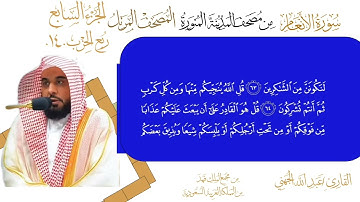 سورة الأنعام من مصحف المدينة المنورة المصحف المرتل الجزء السابع
ربع الحزب ١٤
لَنَكُونَنَّ مِنَ الشَّاكِرِينَ ٦٣ قُلِ اللَّهُ يُنَجِّيكُم مِّنْهَا وَمِن كُلِّ كَرْبٍ
ثُمَّ أَنتُمْ تُشْرِكُونَ ٦٤ قُلْ هُوَ الْقَادِرُ عَلَىٰ أَن يَبْعَثَ عَلَيْكُمْ عَذَابًا
مِّن فَوْقِكُمْ أَوْ مِن تَحْتِ أَرْجُلِكُمْ أَوْ يَلْبِسَكُمْ شِيَعًا وَيُذِيقَ بَعْضَكُم
القارئ عبد الله الجهني
من مجمع الملك فهد
من المملكة العربية السعودية